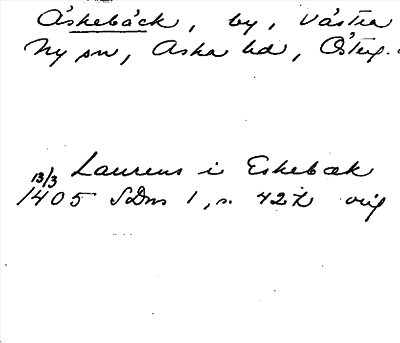 Åskebäck, by, Västra
Ny sn, Aska hd, Östig.
Laurens i Eskebæk
13/3
1405 SDns 1, s. 427 orig